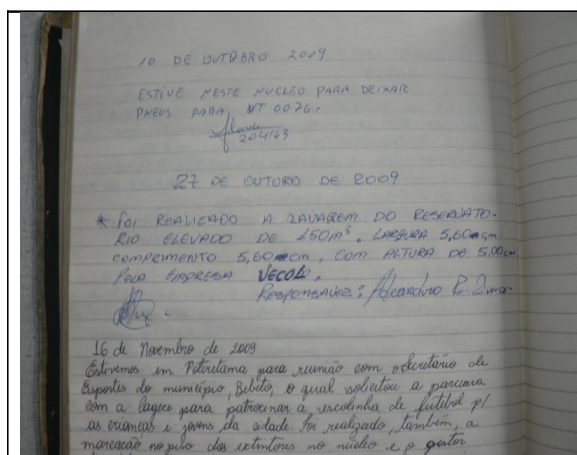 10 DE OUTUBRO 2009
ESTIVE NESTE NUCLEO PARA DEIXAR
PNEUS PARA VT 0076.
204143
27 DE OUTURO DE 2009
* FOI REALIZADO A LAVAGEM DO RESERVATO-
RIO ELEVADO DE 150m³. LARGURA 5,60 cm
comprimento 5,60 cm, COM ALTURA DE 5,00cm
PELA EMPRESA VECOL.
RESPONSAVEL:
16 de Novembro de 2009
Estivemos em Potiretama para reunião com o secretário de
Esportes do município, Bebito, o qual solicitou a parceria
com a Cagece para patrocinar a escolinha de futibol p/
as crianças e jovens da cidade. Foi realizado, também, a
marcação no piso dos extintores no núcleo e o gestor